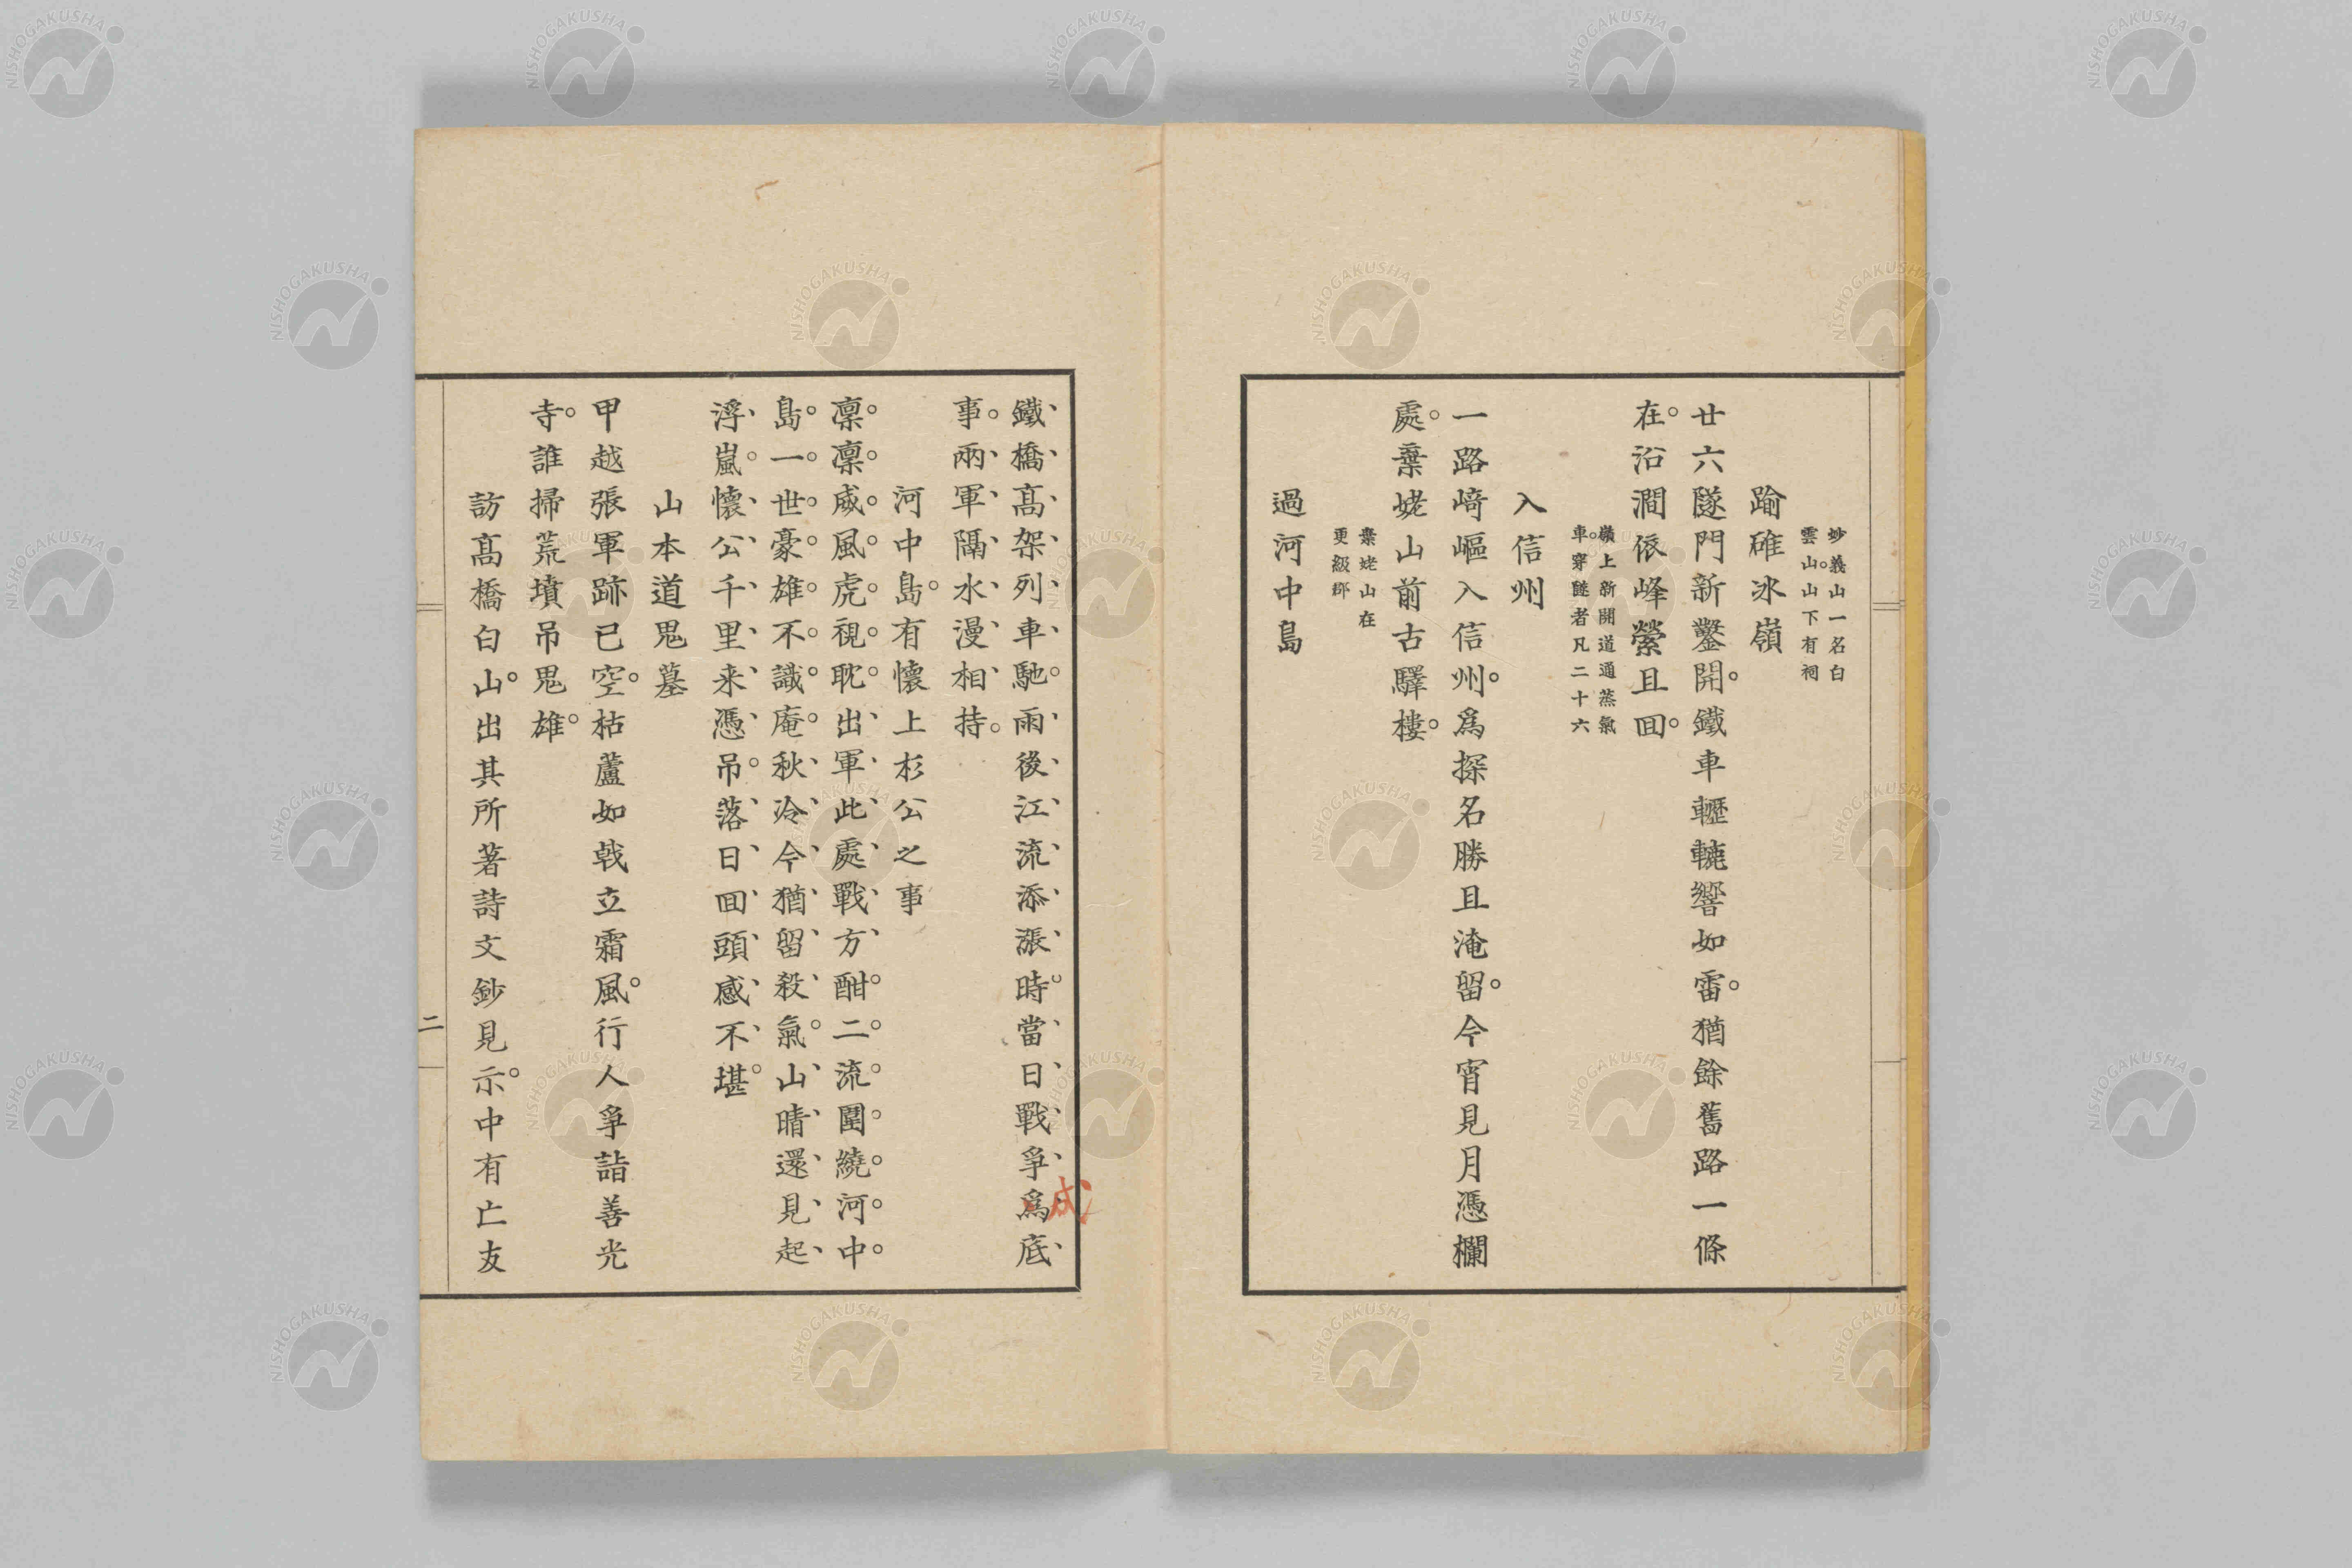 妙義山一名白
雲山。山下有祠
踰碓冰嶺
廿六隧門新鑿開。鐵車轣轆響如雷。猶餘舊路一條
在。沿澗依峰縈且回。
嶺上新開道通蒸氣
車。穿隧者凡二十六
入信州
一路﨑嶇入信州。爲探名勝且淹留。今宵見月憑欄
處。棄姥山前古驛樓。
棄姥山在
更級郡
過河中島
鐵橋高架列車馳。雨後江流添漲時。當日戰爭爲底
成
事。兩軍隔水漫相持。
河中島。有懷上杉公之事
凛凛威風虎視耽。出軍此處戰方酣。二流圍繞河中
島。一世豪雄不識庵。秋冷今猶留殺氣。山晴還見起
浮嵐。懷公千里来憑吊。落日回頭感不堪。
山本道鬼墓
甲越張軍跡已空。枯蘆如戟立霜風。行人爭詣善光
寺。誰掃荒墳吊鬼雄。
訪髙橋白山。出其所著詩文鈔見示。中有亡友
二
NISHOGAKUSHA